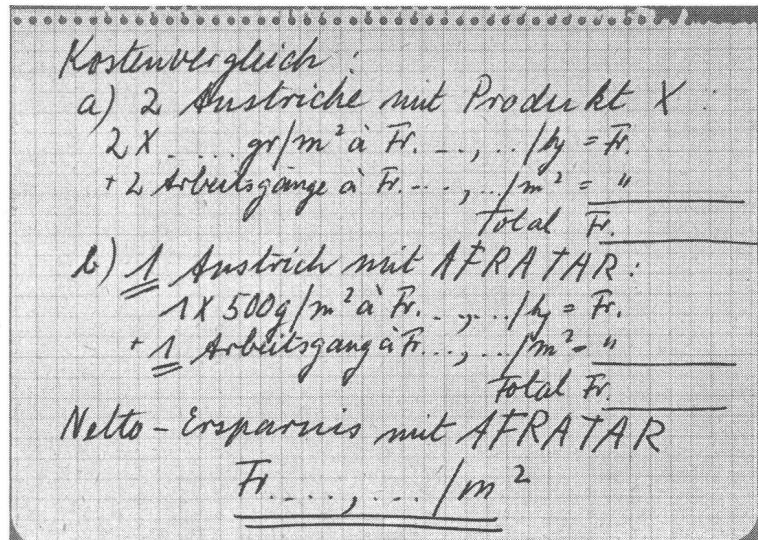 Kostenvergleich:
a) 2 Anstriche mit Produkt X
2 X ...... gr/m² à Fr. ..,../kg = Fr.
+ 2 Arbeitsgänge à Fr. ...,../m² = "
Total Fr.
b) 1 Anstrich mit AFRATAR:
1 X 500g/m² à Fr. ..,../kg = Fr.
+ 1 Arbeitsgang à Fr. ..,../m² = "
Total Fr.
Netto-Ersparnis mit AFRATAR
Fr. ...,.../m²